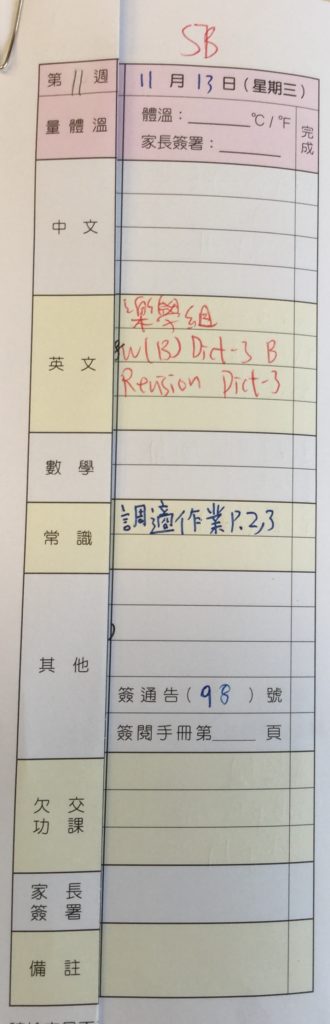 5B
第 11 週 11 月 13 日 (星期三)
量體溫 體溫：______°C / °F 完成
家長簽署：______
中文
英文 樂學組
W(B) Dict-3 B
Revision Dict-3
數學
常識 調適作業 P.2,3
其他
簽通告 ( 98 ) 號
簽閱手冊第____頁
欠交功課
家長簽署
備註